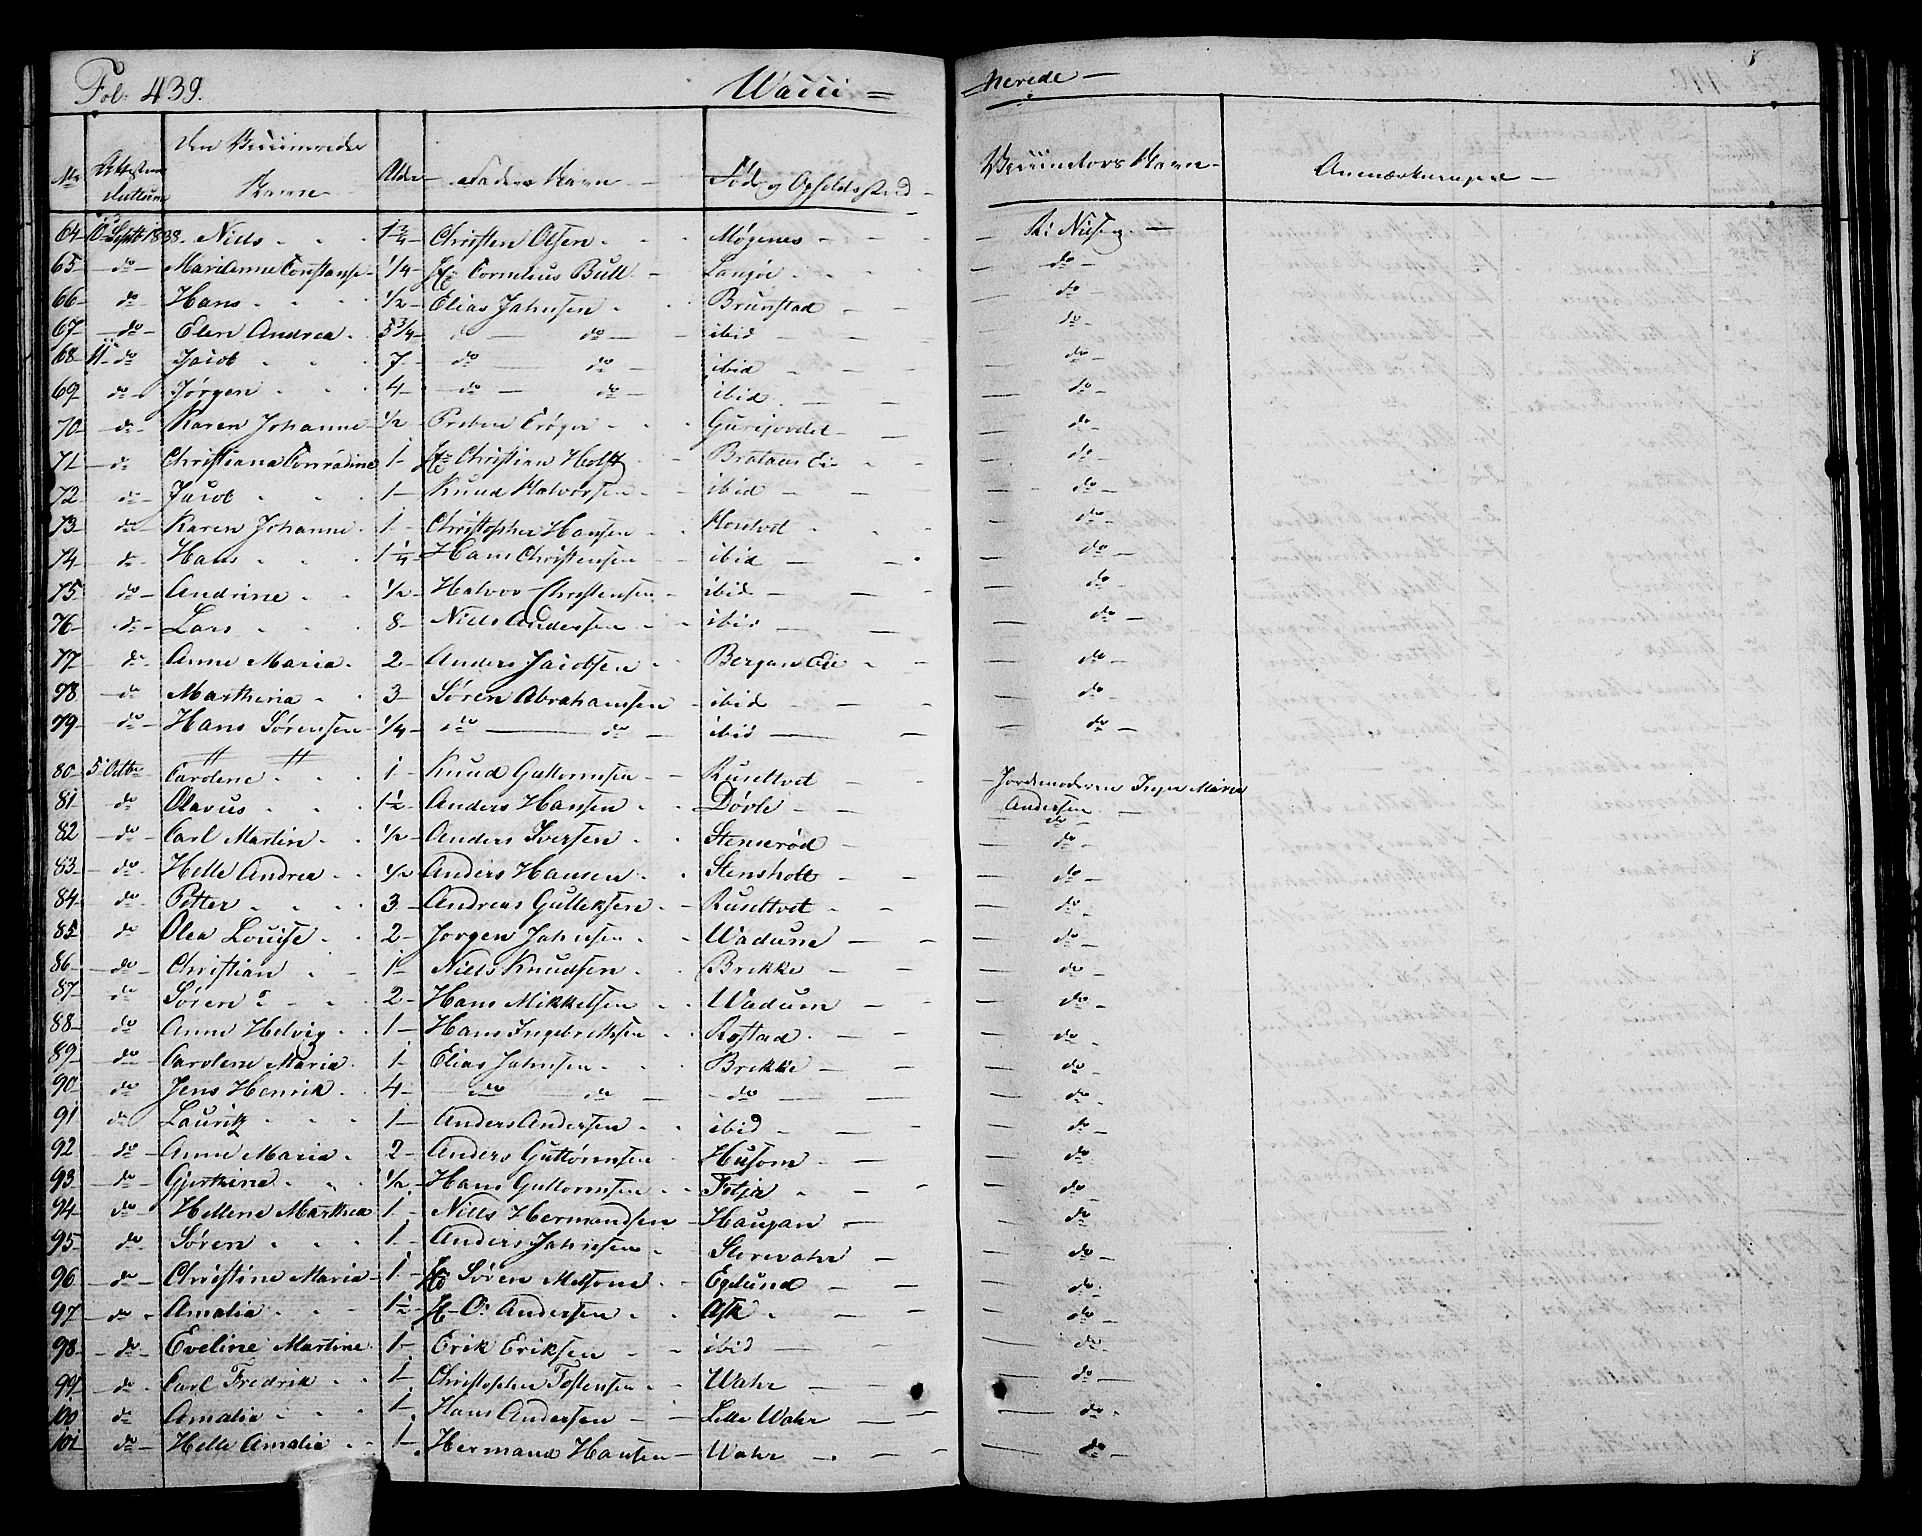 Fol: 439. Wacci= =nerede —
No Attestens Dattum den Vaccineredes Navn Alder Faders Navn Føde og Opholdssted Vaccinators Navn Anmærkninger
64 10 Septb 1838. Niels 1¾ Christen Olsen Møgenes R: Nielsen
65 do Maridenne Constanse ¼ Hr: Cornelius Bull Langøe do
66 do Hans ½ Elias Jahnsen Brunstad do
67 do Elen Andrea 5¾ do do ibid do
68 11 do Jacob 7 do do ibid do
69 do Jørgen 4 do do ibid do
70 do Karen Johanne ½ Preben Crøger do
71 do Christiana Conradine 1 Hr: Christian Holst Brataas Eie do
72 do Jacob 1 Knud Halvorsen ibid do
73 do Karen Johanne 1 Christopher Hansen do
74 do Hans 1¼ Hans Christensen ibid do
75 do Andrine ½ Halvor Christensen ibid do
76 do Lars 8 Niels Andersen ibid do
77 do Anne Maria 2 Anders Jacobsen Bergan Eie do
78 do Marthina 3 Søren Abrahamsen ibid do
79 do Hans Sørensen ¼ do do ibid do
80 5 Octbr Carolene 1 Knud Guttormsen Ruseltvet Jordemoderen Inger Maria
81 do Olavus 1½ Anders Hansen Døvle Andersen do
82 do Carl Martin ½ Anders Iversen Stenserød do
83 do Helle Andrea ½ Anders Hansen Stensholt do
84 do Petter 3 Andreas Gulleksen Ruseltvet do
85 do Olea Louise 2 Jørgen Jahnsen Wadum do
86 do Christian 1 Niels Knudsen Brekke do
87 do Søren 2 Hans Mikkelsen Wadum do
88 do Anne Helvig 1 Hans Ingebrektsen do
89 do Carolene Maria 1 Elias Jahnsen Brekke do
90 do Jens Henrik 4 do do do do
91 do Lauritz 1 Anders Andersen ibid do
92 do Anne Maria 2 Anders Guttormsen Husom do
93 do Gjerthine ½ Hans Guttormsen do
94 do Hellene Marthea 1 Niels Hermandsen Haugan do
95 do Søren 1 Anders Jahnsen Storevahr do
96 do Christine Maria 1 Hr: Søren Melsome Egelund do
97 do Amalia 1½ H. O: Andersen Ask do
98 do Eveline Martine 1 Erik Eriksen ibid do
99 do Carl Fredrik 1 Christopher Tostensen Wahr do
100 do Amalia 1 Hans Andersen Lille Wahr do
101 do Helle Amalia 1 Hermand Hansen Wahr do